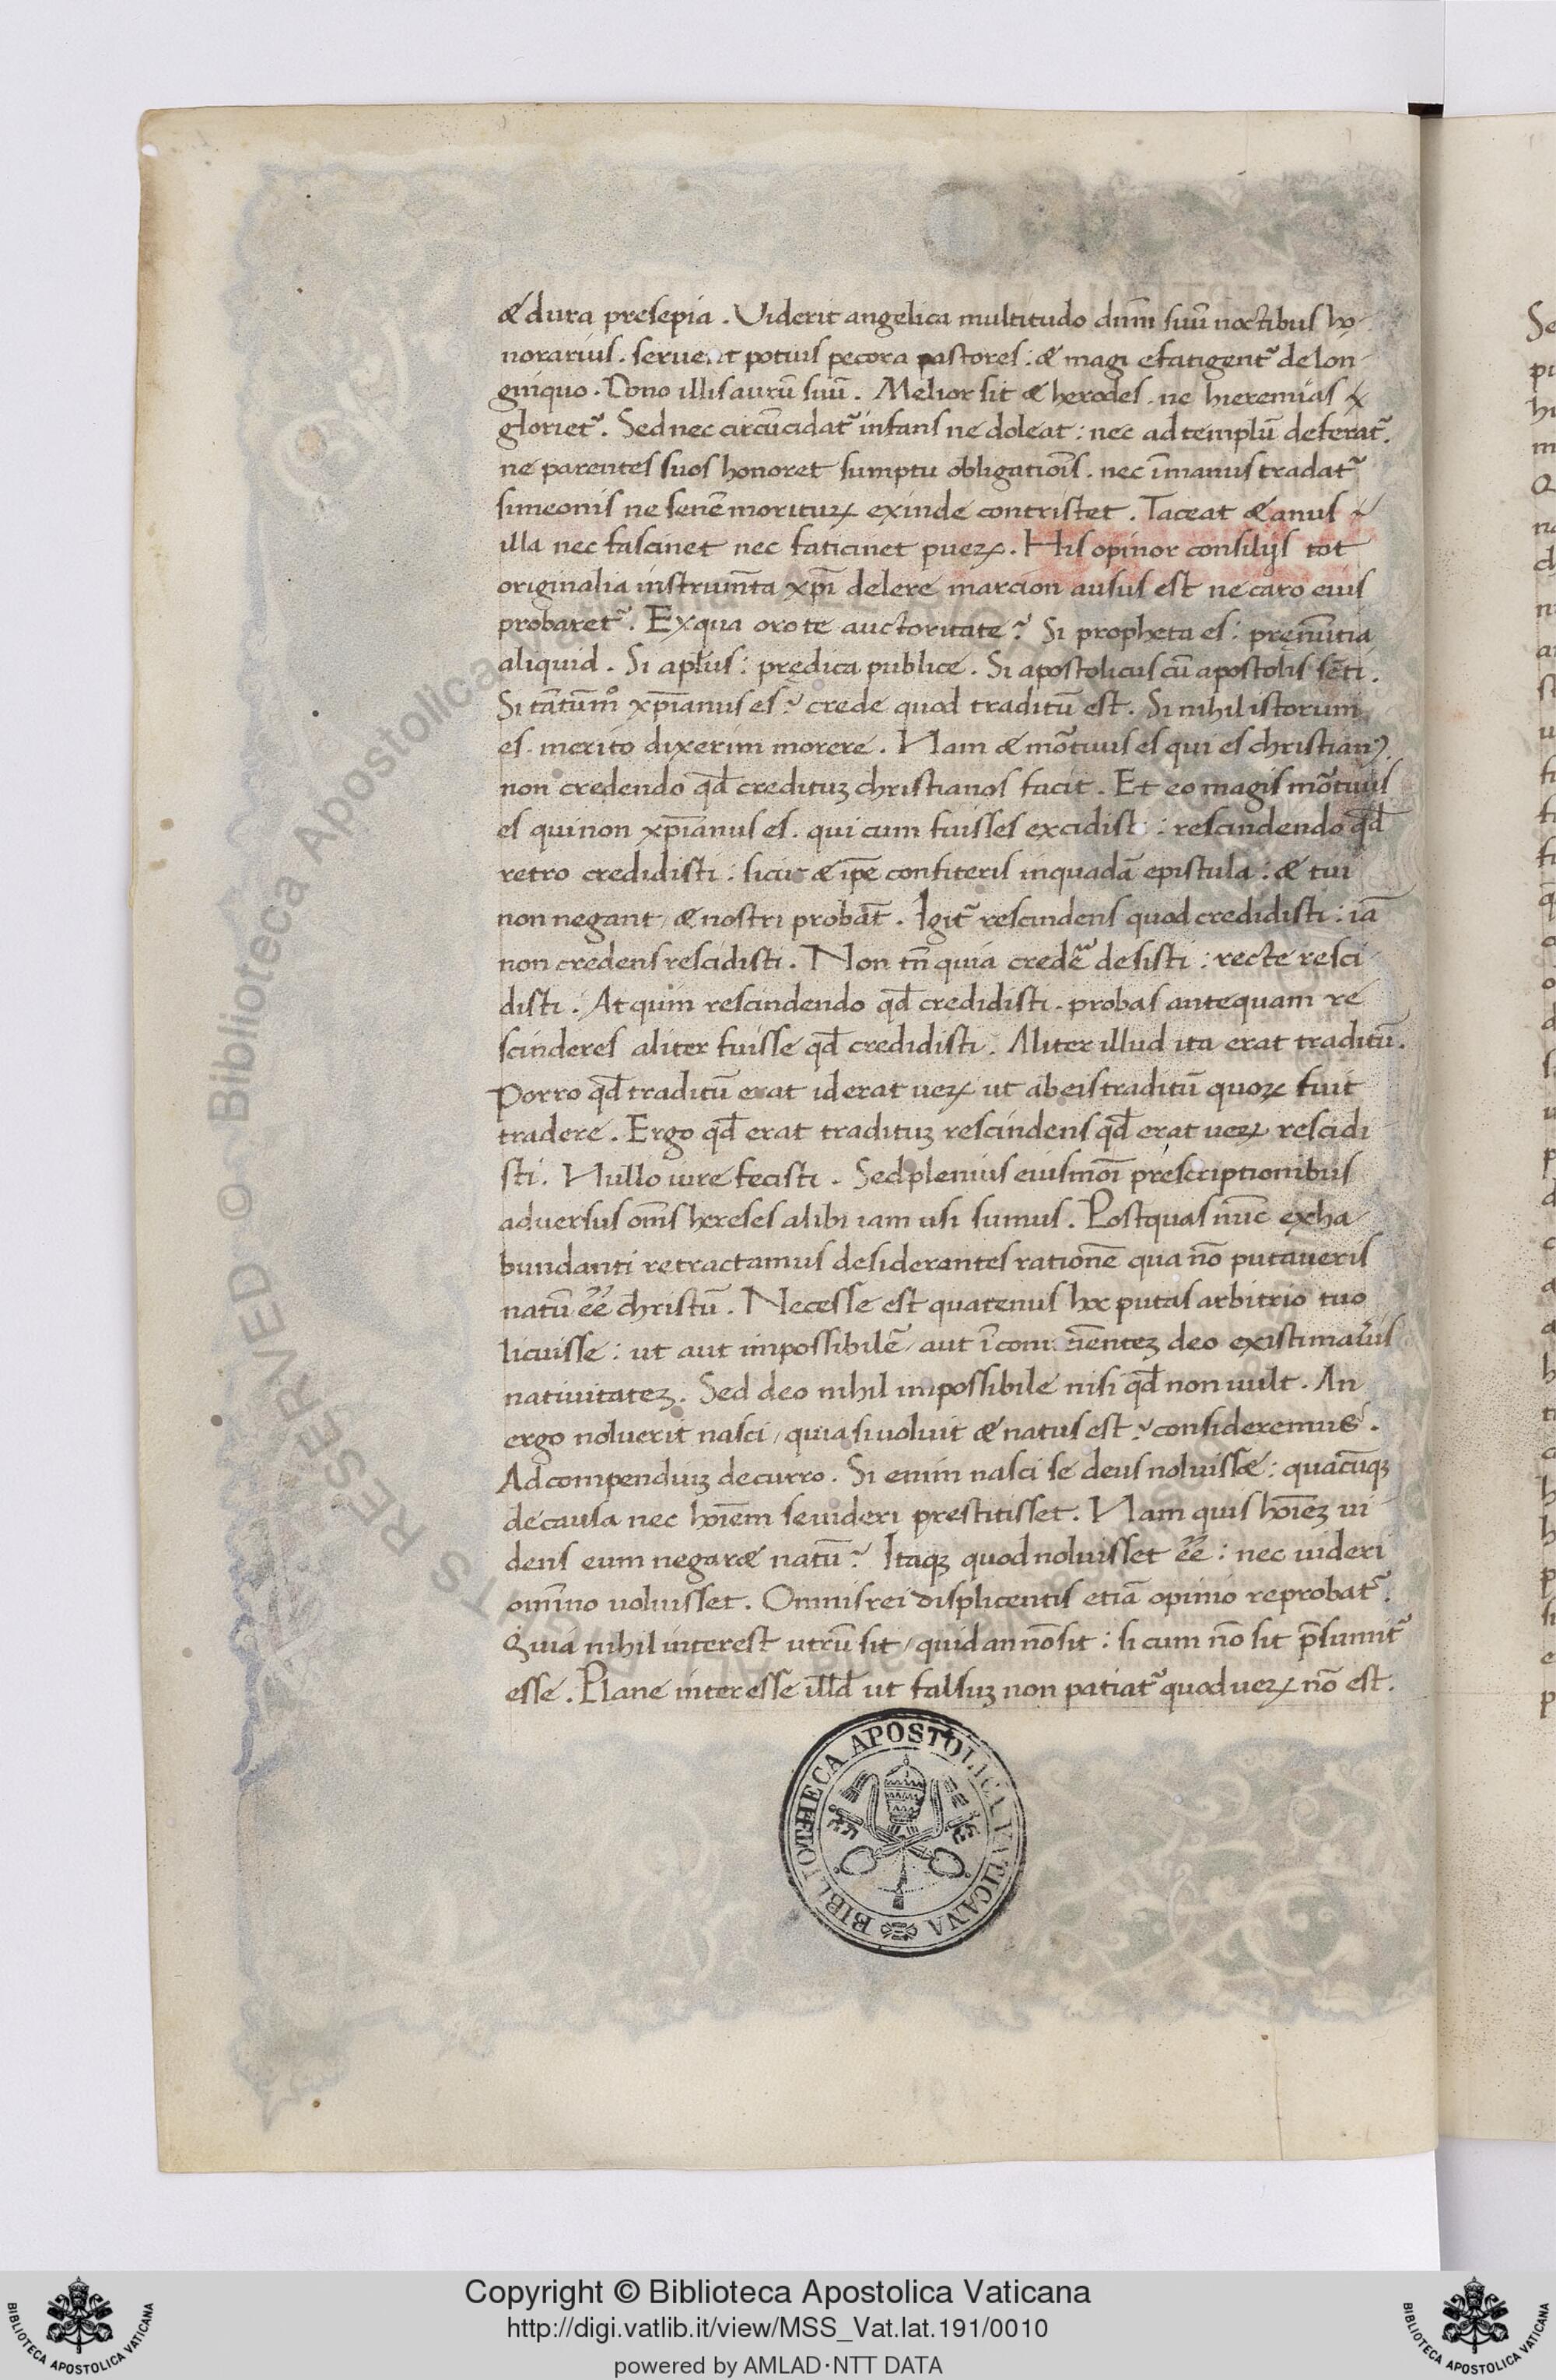 & dura presepia . Viderit angelica multitudo dūm suū noctibus ho
norarius . servent potius pecora pastores : & magi efatigentˀ de lon
ginquo . Dono illis aurū suū . Melior sit & herodes . ne hieremias
glorietˀ . Sed nec circūcidatˀ infans ne doleat : nec ad templū deferatˀ .
ne parentes suos honoret sumptu obligatiōis . nec ī manus tradatˀ
simeonis ne senē moriturꝝ exinde contristet . Taceat & anus
illa nec fascinet nec faticinet puerꝝ . His opinor consilijs tot
originalia instrum̄ta xp̄i delere marcion ausus est ne caro eius
probaretˀ . Ex qua oro te auctoritate ? Si propheta es : pręnūtia
aliquid . Si apl̄us : prędica publice . Si apostolicus cū apostolis sēti .
Si tātūmº xp̄ianus es ? crede quod traditū est . Si nihil istorum
es . merito dixerim morere . Nam & mōtuus es qui es christianꝰ .
non credendo qd̄ credituꝫ christianos facit . Et eo magis mōtuus
es qui non xp̄ianus es . qui cum fuisses excidisti : rescindendo qd̄
retro credidisti : sicut & ip̄e confiteris in quadā epistula : & tui
non negant / & nostri probāt . Igitˀ rescindens quod credidisti : iā
non credens rescidisti . Non tn̄ quia credēˀ desisti : recte resci
disti . Atquin rescindendo qd̄ credidisti . probas antequam re
scinderes aliter fuisse qd̄ credidisti . Aliter illud ita erat traditū .
Porro qd̄ traditū erat id erat uerꝝ ut ab eis traditū quoꝝ fuit
tradere . Ergo qd̄ erat tradituꝫ rescindens qd̄ erat uerꝝ rescidi
sti . Nullo iure fecisti . Sed plenius eiusmōi prescriptionibus
adversus om̄s hereses alibi iam usi sumus . Post quas nūc ex ha
bundanti retractamus desiderantes rationē qua nō putaveris
natū ēe christū . Necesse est quatenus hoc putas arbitrio tuo
licuisse : ut aut impossibilē / aut īconuenienteꝫ deo existimaueris
nativitateꝫ . Sed deo nihil impossibile nisi qd̄ non uult . An
ergo noluerit nasci / quia si uoluit & natus est ? consideremus .
Ad compendiuꝫ decurro . Si enim nasci se deus noluiss& : quacūqꝫ
de causa nec hoīem se uideri prestitisset . Nam quis hoīeꝫ ui
dens eum negar& natū ? Itaqꝫ quod noluisset ēe : nec uideri
om̄ino uoluisset . Omnis rei displicentis etiā opinio reprobatˀ .
Quia nihil interest utrū sit / quid an nō sit : si cum nō sit p̄sumitˀ
esse . Plane interesse illd̄ ut falsuꝫ non patiatˀ quod uerꝝ nō est .
BIBLIOTHECA APOSTOLICA VATICANA
RESERVED © Biblioteca Apostolica Vaticana
Copyright © Biblioteca Apostolica Vaticana
http://digi.vatlib.it/view/MSS_Vat.lat.191/0010
powered by AMLAD·NTT DATA
BIBLIOTECA APOSTOLICA VATICANA
BIBLIOTECA APOSTOLICA VATICANA